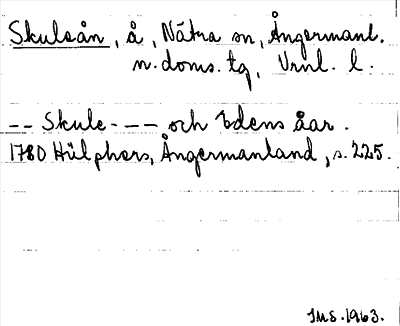 Skulsån, å, Nätra sn, Ångermanl.
n. doms. tg, Vrnl. l.
-- Skule- --- och Edens åar.
1780 Hülphers, Ångermanland, s. 225.
IMS. 1963.